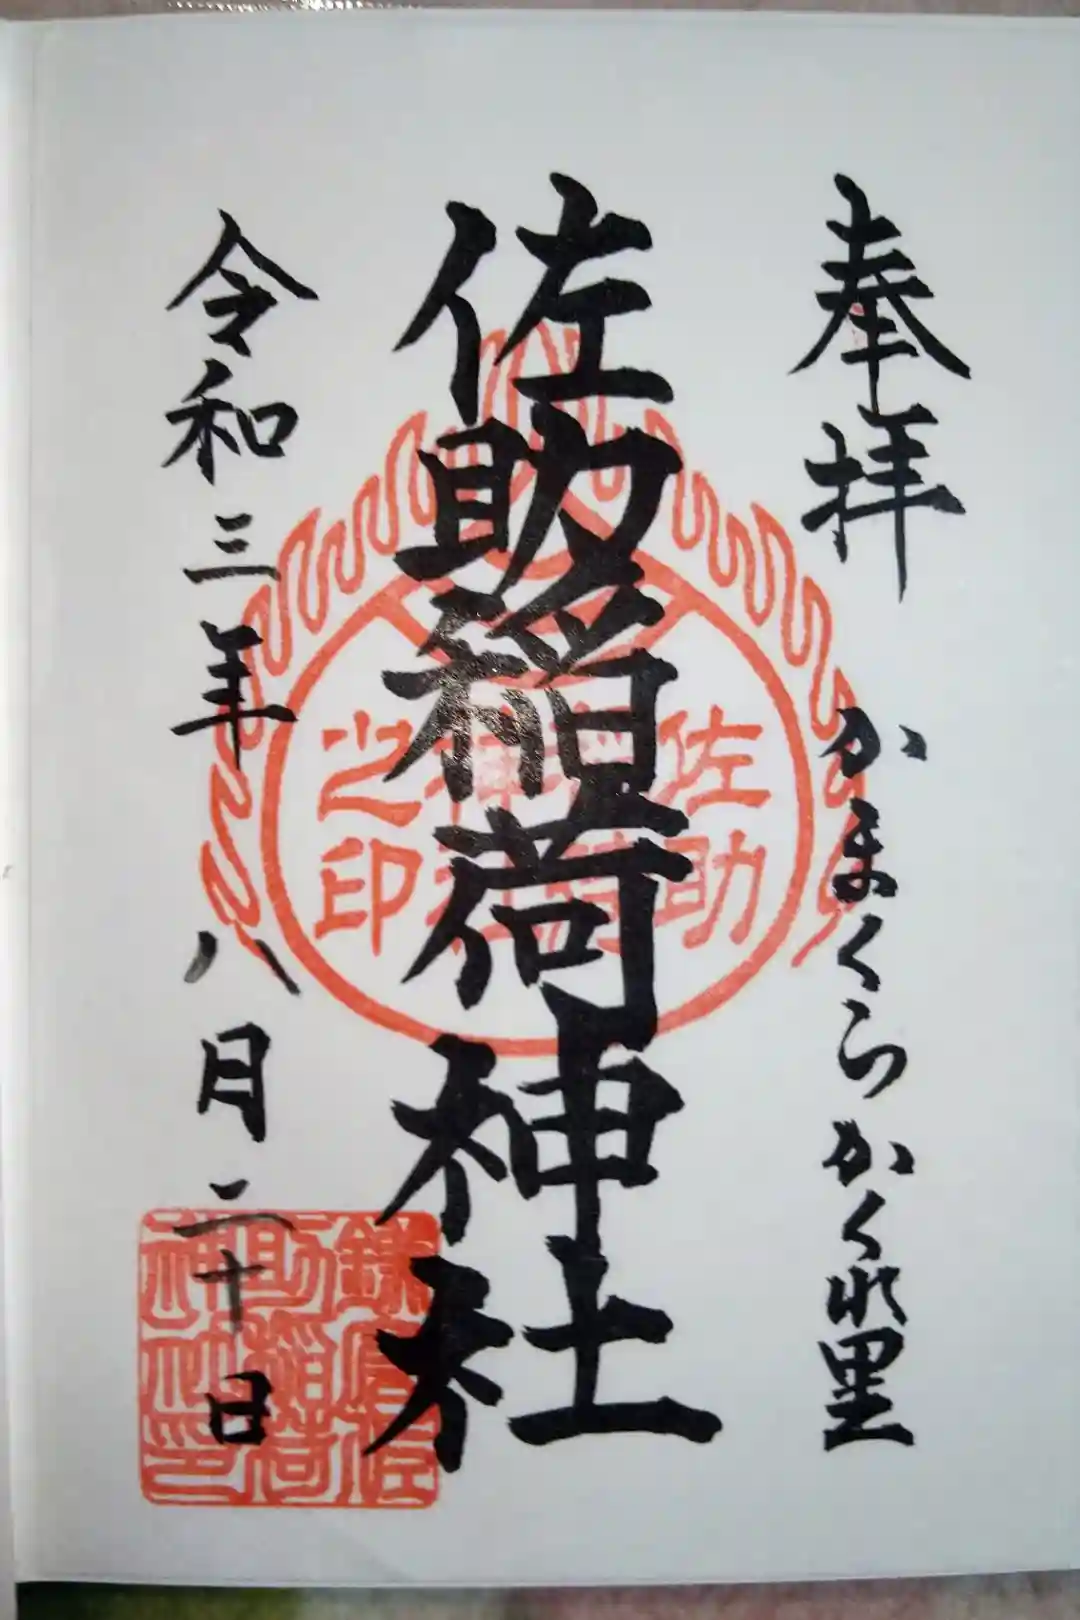 奉拝
かまくらかくれ里
佐助稲荷神社
令和三年八月二十日
佐助
稲荷
神社
之印
鎌倉佐
助稲荷
神社印